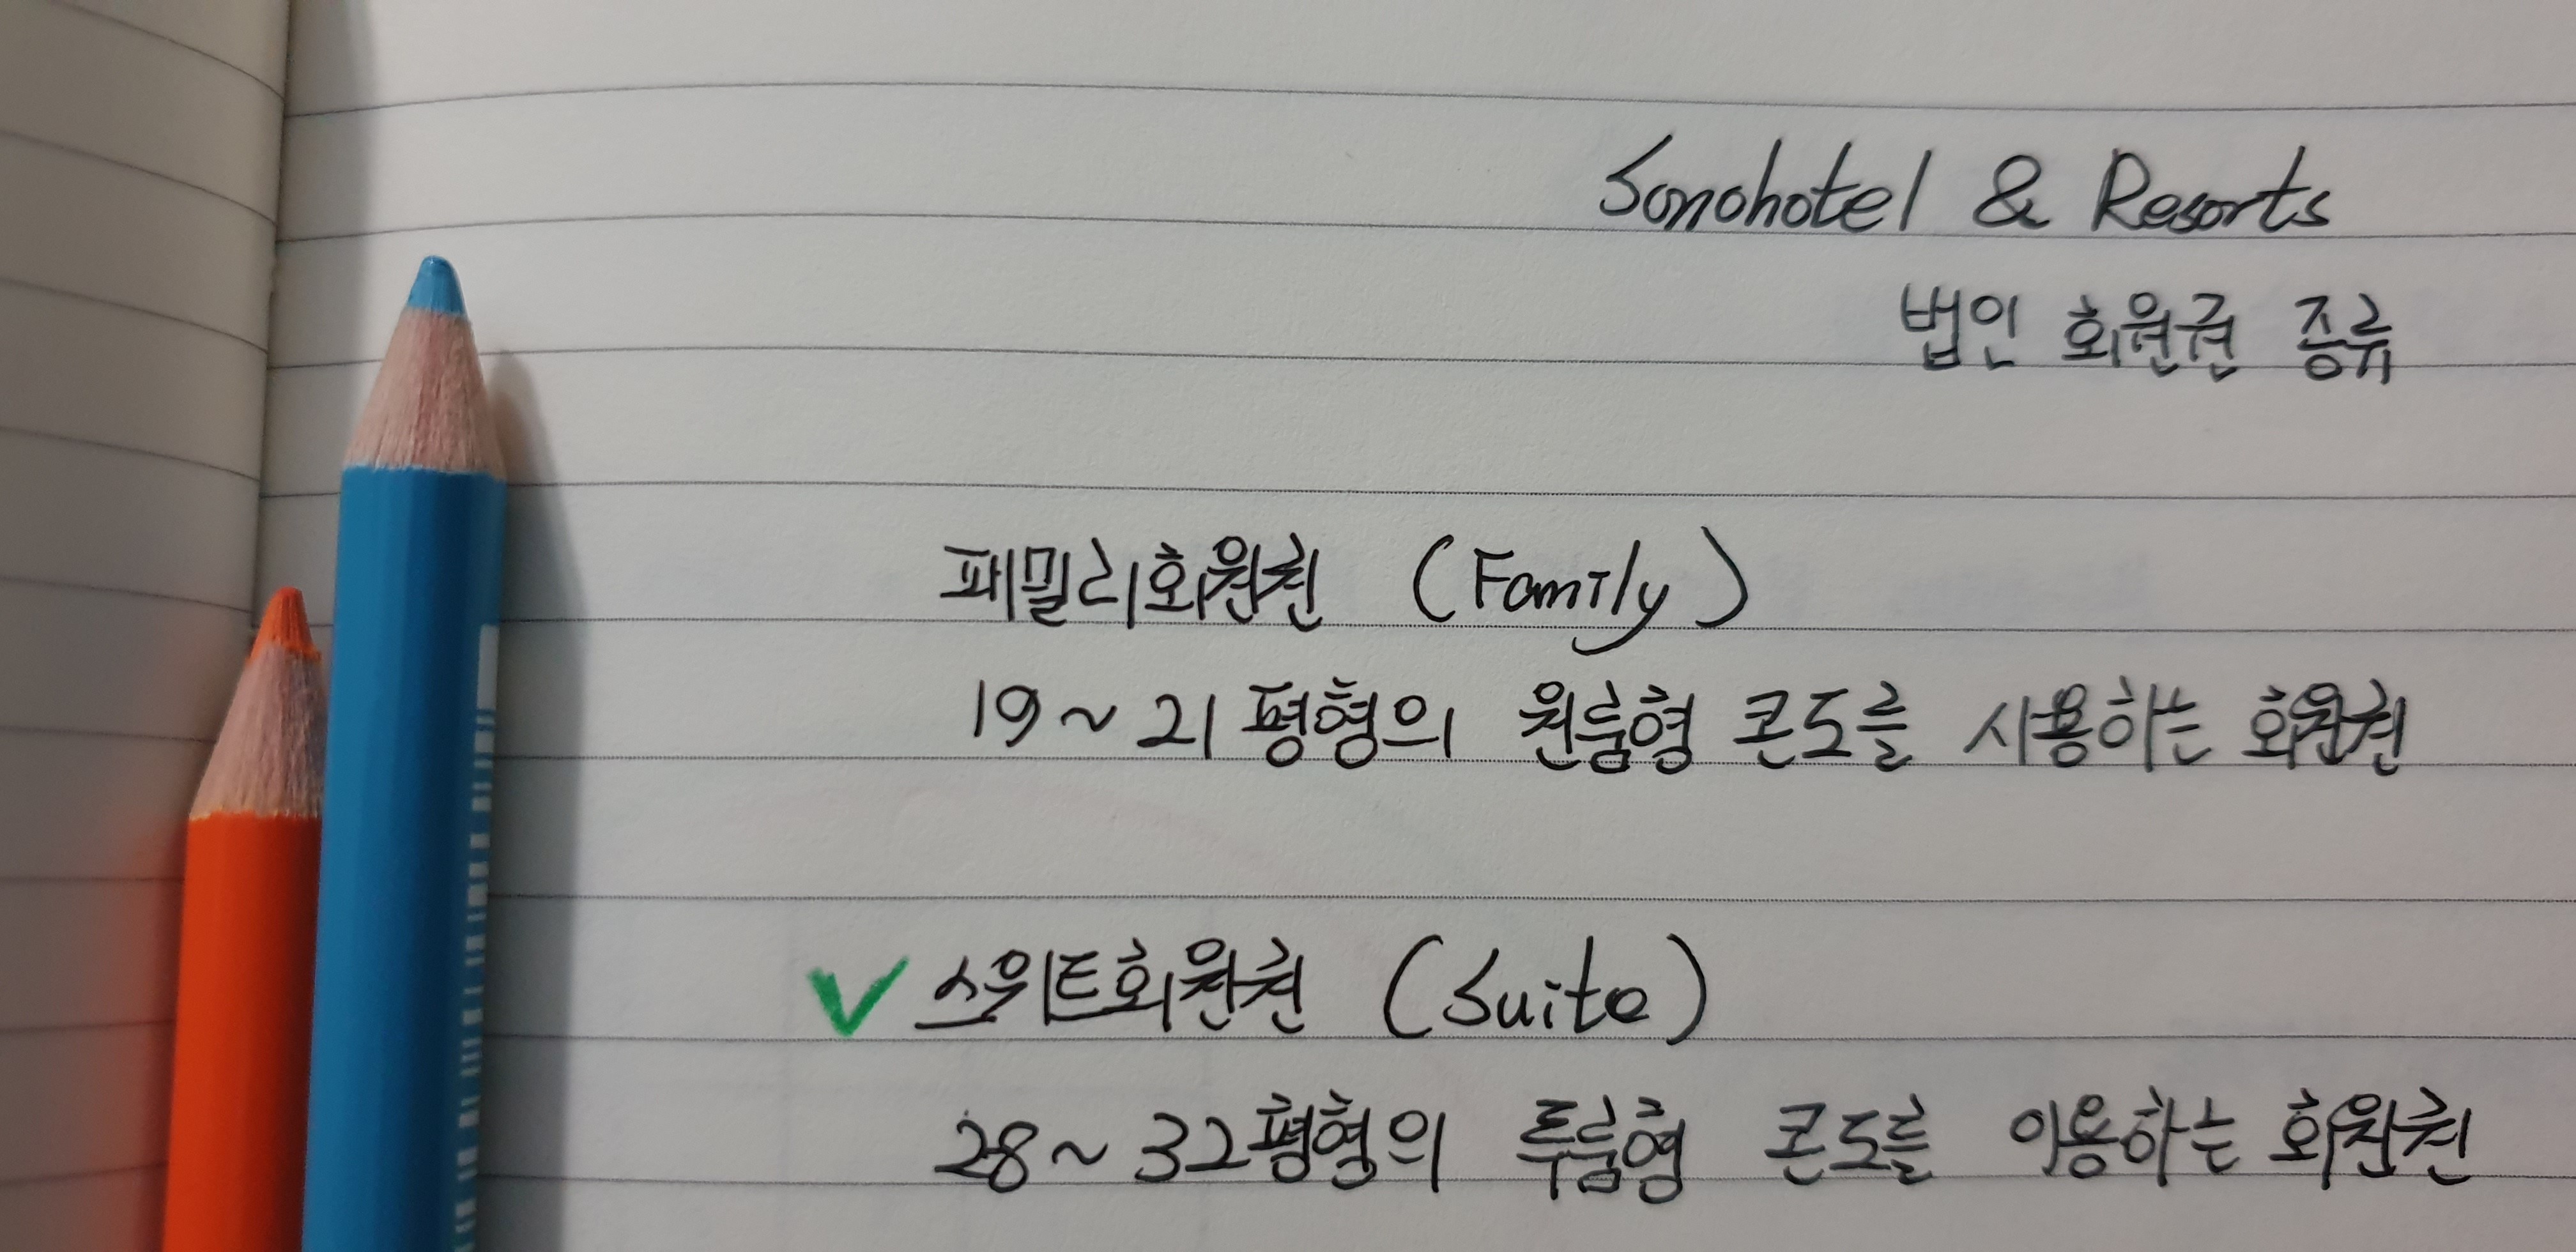 Sonohotel & Resorts
법인 회원권 종류
패밀리회원권 (Family)
19~21평형의 원룸형 콘도를 사용하는 회원권
V 스위트회원권 (Suite)
28~32평형의 투룸형 콘도를 이용하는 회원권